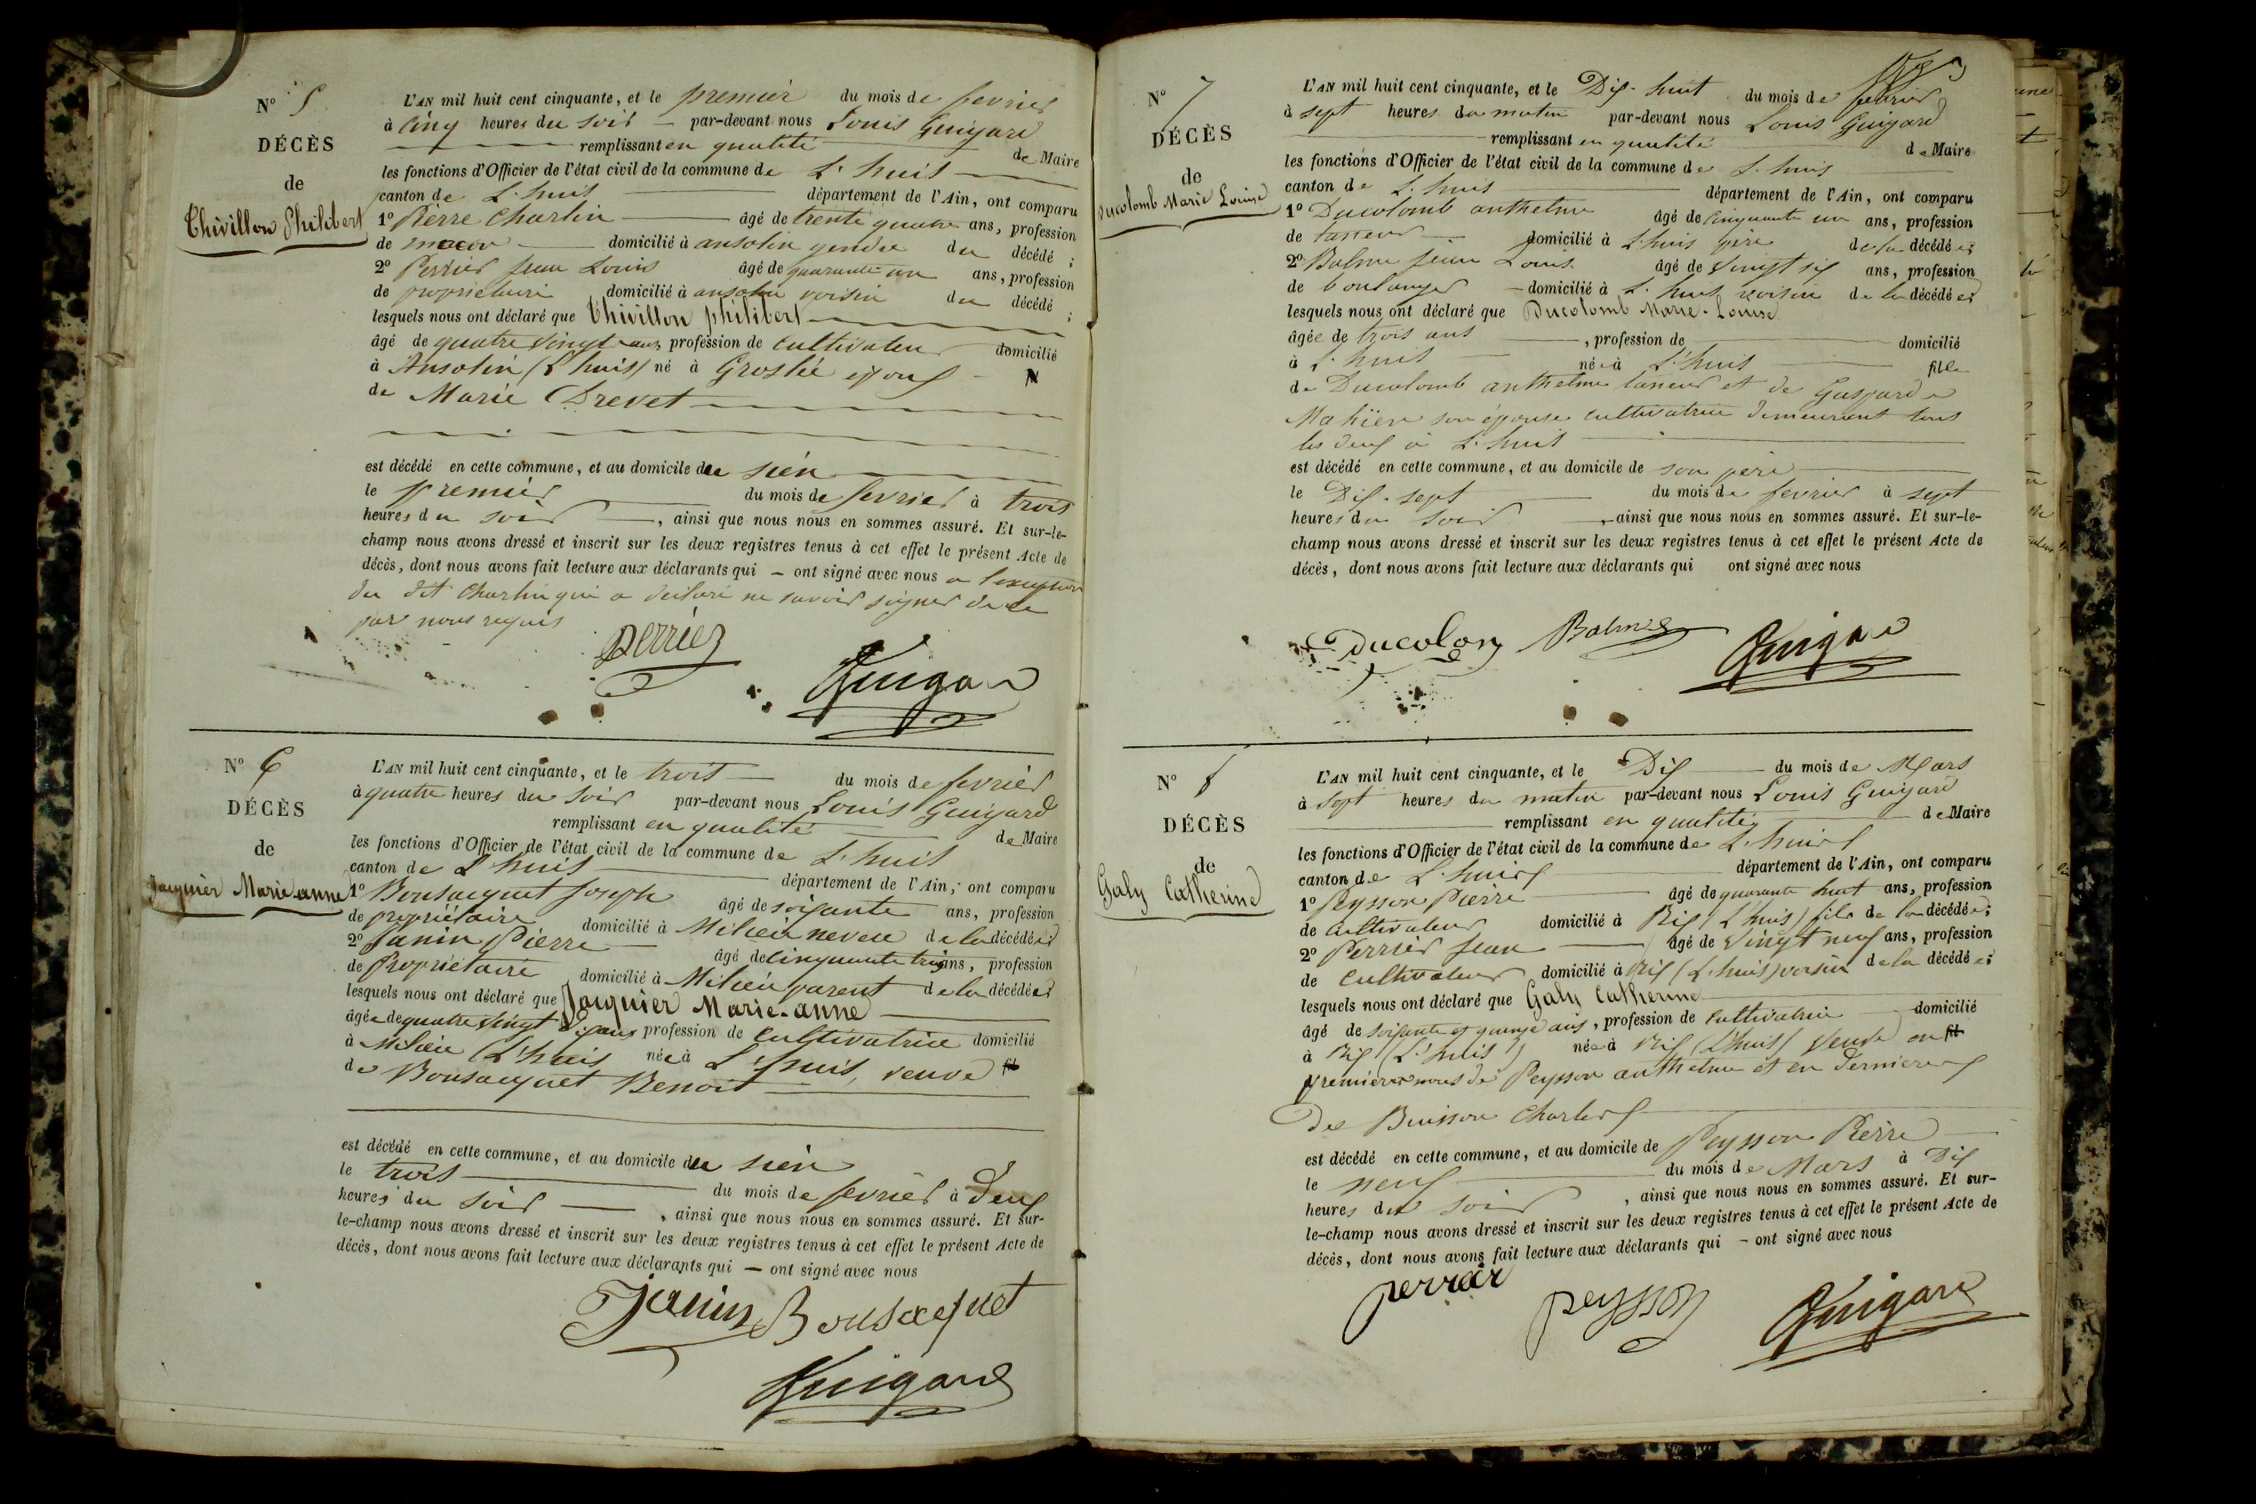 N° 5
DÉCÈS
de
Thivillon Philibert
L'AN mil huit cent cinquante, et le premier du mois de fevrier
à cinq heures du soir par-devant nous Louis Guigard
remplissant en qualité de Maire
les fonctions d'Officier de l'état civil de la commune de L'huis
canton de L'huis département de l'Ain, ont comparu
1° Pierre Charlin âgé de trente quatre ans, profession
de macon domicilié à ansolin gendre du décédé ;
2° Perrier Jean Louis âgé de quarante un ans, profession
de propriétaire domicilié à ansolin voisin du décédé ;
lesquels nous ont déclaré que Thivillon philibert
âgé de quatre vingt ans profession de cultivateur domicilié
à Ansolin (L'huis) né à Groslée époux
de Marie Drevet
est décédé en cette commune, et au domicile de sien
le premier du mois de fevrier à trois
heures du soir , ainsi que nous nous en sommes assuré. Et sur-le-
champ nous avons dressé et inscrit sur les deux registres tenus à cet effet le présent Acte de
décès, dont nous avons fait lecture aux déclarants qui ont signé avec nous a l'exception
du dit Charlin qui a déclaré ne savoir signer de ce
par nous requis
perrier
Guigard
N° 6
DÉCÈS
de
Jacquier Marie-anne
L'AN mil huit cent cinquante, et le trois du mois de fevrier
à quatre heures du soir par-devant nous Louis Guigard
remplissant en qualité de Maire
les fonctions d'Officier de l'état civil de la commune de L'huis
canton de L'huis département de l'Ain, ont comparu
1° Bonsacquet Joseph âgé de soixante ans, profession
de propriétaire domicilié à Milieu neveu de la décédée ;
2° Janin Pierre âgé de cinquante trois ans, profession
de Propriétaire domicilié à Milieu parent de la décédée ;
lesquels nous ont déclaré que Jacquier Marie-anne
âgée de quatre vingt dix ans profession de cultivatrice domicilié
à Milieu (L'huis née à L'huis, veuve fil
de Bonsacquet Benoit
est décédé en cette commune, et au domicile du sien
le trois du mois de fevrier à deux
heures du soir , ainsi que nous nous en sommes assuré. Et sur-
le-champ nous avons dressé et inscrit sur les deux registres tenus à cet effet le présent Acte de
décès, dont nous avons fait lecture aux déclarants qui ont signé avec nous
Janin Bousacquet
Guigard
N° 7
DÉCÈS
de
Ducolomb Marie Louise
L'AN mil huit cent cinquante, et le Dix-huit du mois de fevrier
à sept heures du matin par-devant nous Louis Guigard
remplissant en qualité de Maire
les fonctions d'Officier de l'état civil de la commune de L'huis
canton de L'huis département de l'Ain, ont comparu
1° Ducolomb anthelme âgé de cinquante un ans, profession
de tanneur domicilié à L'huis père de la décédée ;
2° Balme Jean Louis âgé de vingt six ans, profession
de boulanger domicilié à L'huis voisin de la décédée ;
lesquels nous ont déclaré que Ducolomb Marie-Louise
âgée de trois ans , profession de domicilié
à L'huis née à L'huis fille
de Ducolomb anthelme tanneur et de Gasparde
Mahien son épouse cultivatrice demeurant tous
les deux à L'huis
est décédé en cette commune, et au domicile de son père
le Dix-sept du mois de fevrier à sept
heures du soir , ainsi que nous nous en sommes assuré. Et sur-le-
champ nous avons dressé et inscrit sur les deux registres tenus à cet effet le présent Acte de
décès, dont nous avons fait lecture aux déclarants qui ont signé avec nous
Ducolom Balme Guigard
N° 8
DÉCÈS
de
Galy Catherine
L'AN mil huit cent cinquante, et le Dix du mois de Mars
à sept heures du matin par-devant nous Louis Guigard
remplissant en qualité de Maire
les fonctions d'Officier de l'état civil de la commune de L'huis
canton de L'huis département de l'Ain, ont comparu
1° Peysson Pierre âgé de quarante huit ans, profession
de cultivateur domicilié à Rix (L'huis) fils de la décédée ;
2° Perrier Jean âgé de vingt neuf ans, profession
de cultivateur domicilié à Rix (L'huis) voisin de la décédée ;
lesquels nous ont déclaré que Galy Catherine
âgé de soixante et quinze ans, profession de cultivatrice domicilié
à Rix (L'huis) née à Rix (L'huis) veuve en fil
premières noces de Peysson anthelme et en dernieres
De Buisson Charles
est décédé en cette commune, et au domicile de Peysson Pierre
le neuf du mois de Mars à Dix
heures du soir , ainsi que nous nous en sommes assuré. Et sur-
le-champ nous avons dressé et inscrit sur les deux registres tenus à cet effet le présent Acte de
décès, dont nous avons fait lecture aux déclarants qui ont signé avec nous
perrier peysson Guigard